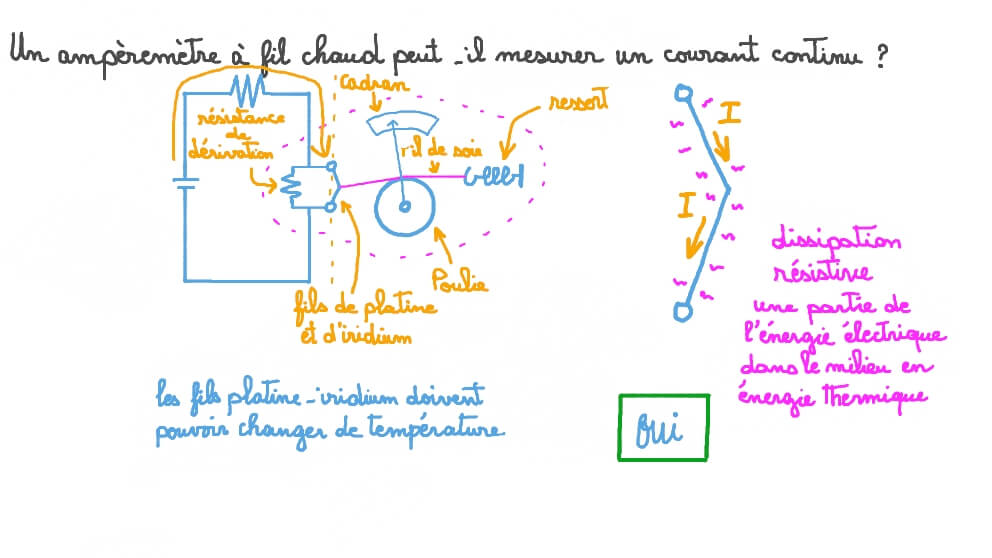 Un ampèremètre à fil chaud peut-il mesurer un courant continu ?
cadran
ressort
résistance
de
dérivation
fil de soie
I
I
Poulie
fils de platine
et d'iridium
dissipation
résistive
une partie de
l'énergie électrique
dans le milieu en
énergie thermique
les fils platine-iridium doivent
pouvoir changer de température
oui